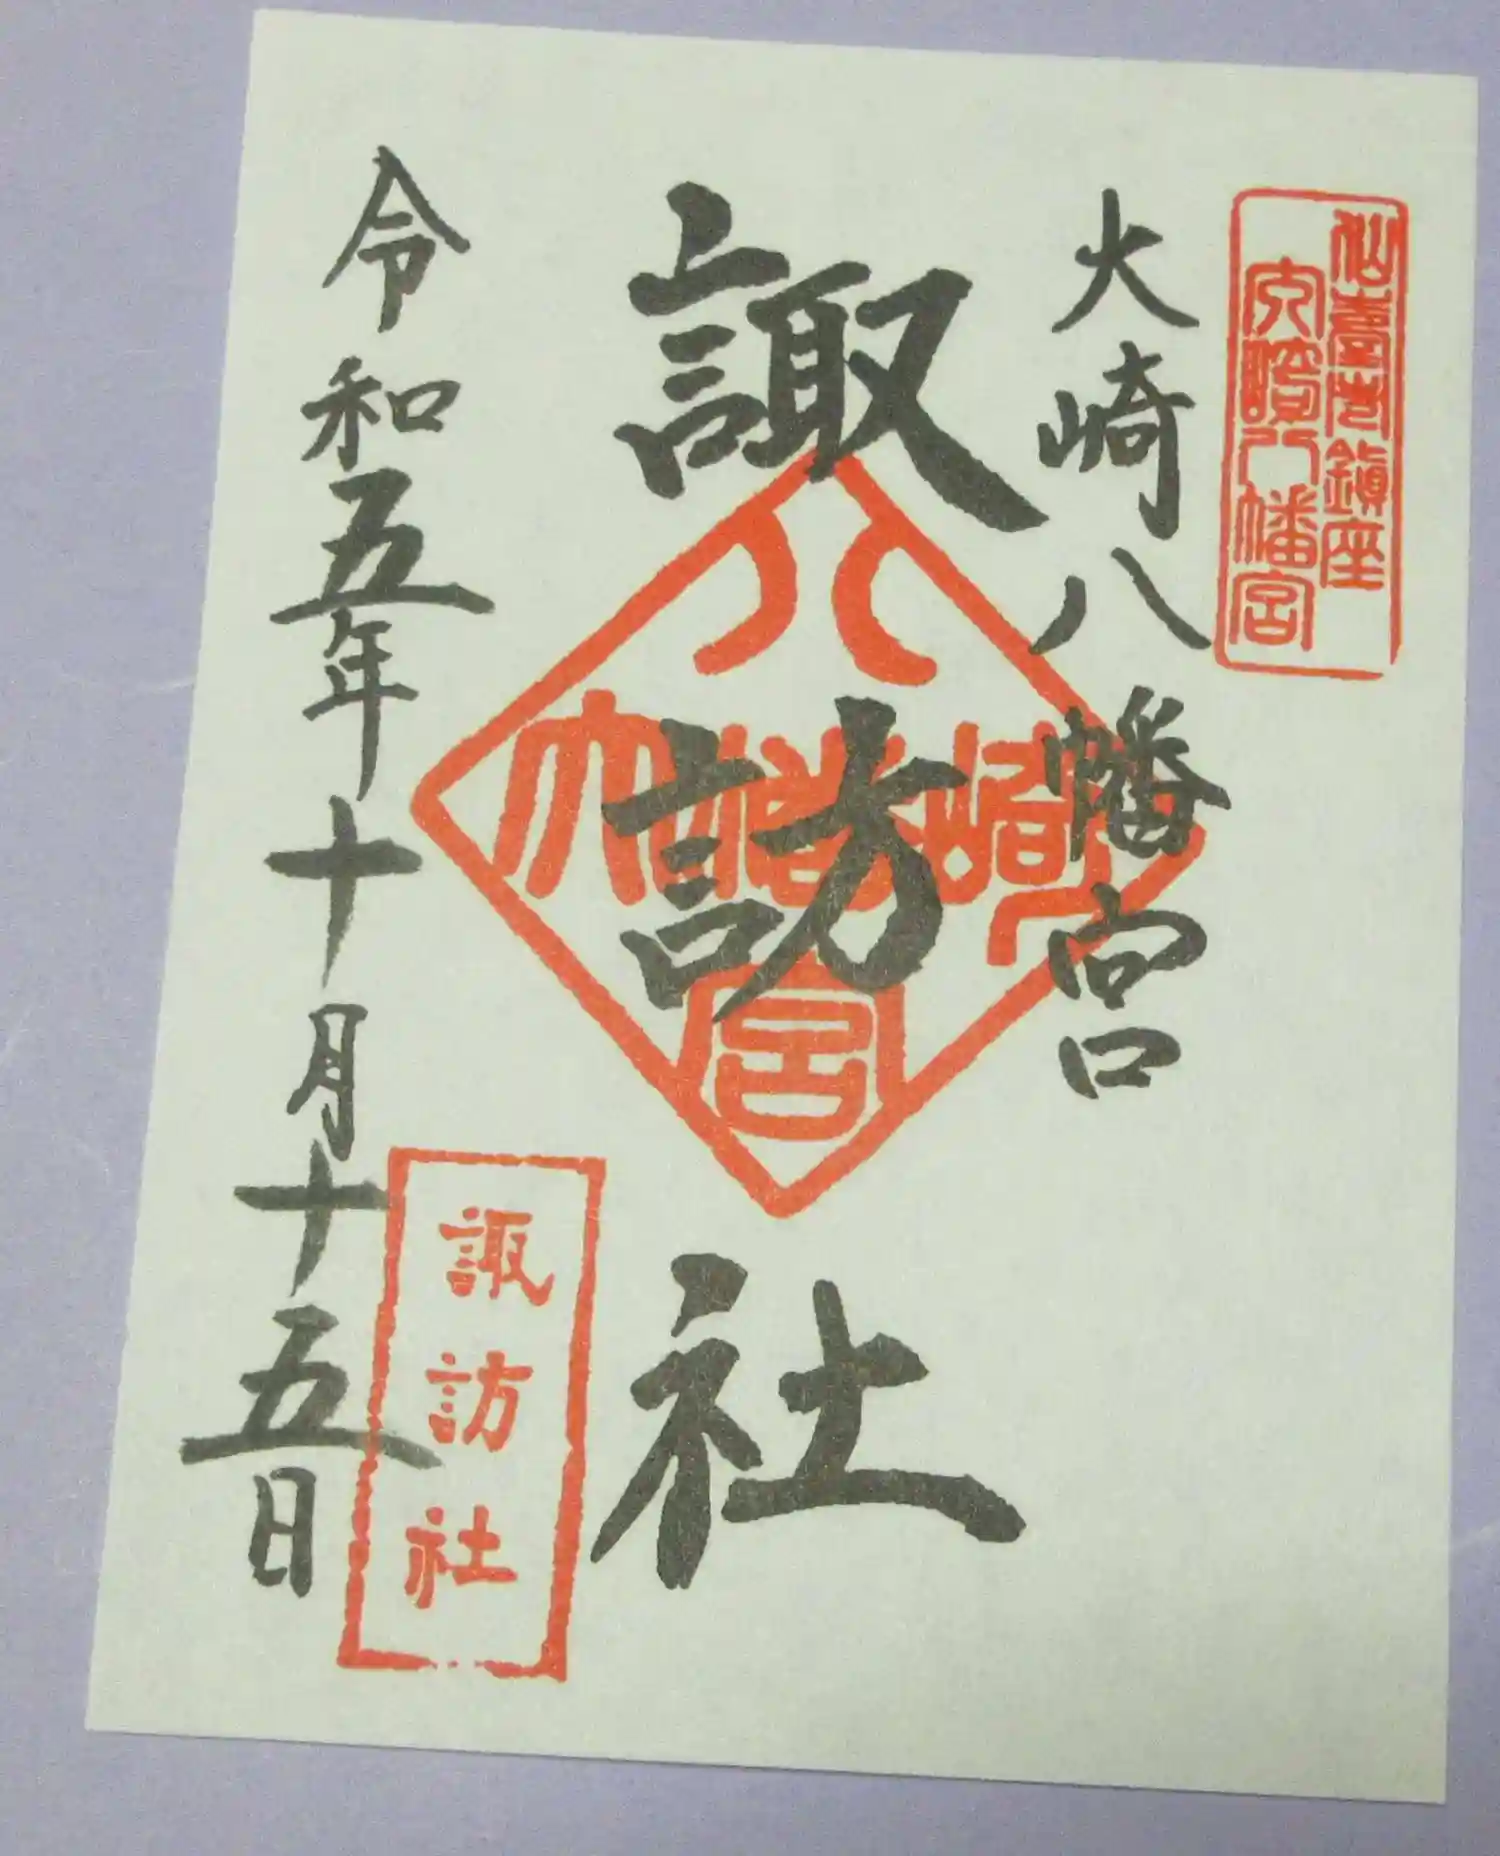 仙臺市鎮座
大崎八幡宮
大崎八幡宮
諏訪社
八幡宮
大崎
諏訪社
令和五年十月十五日